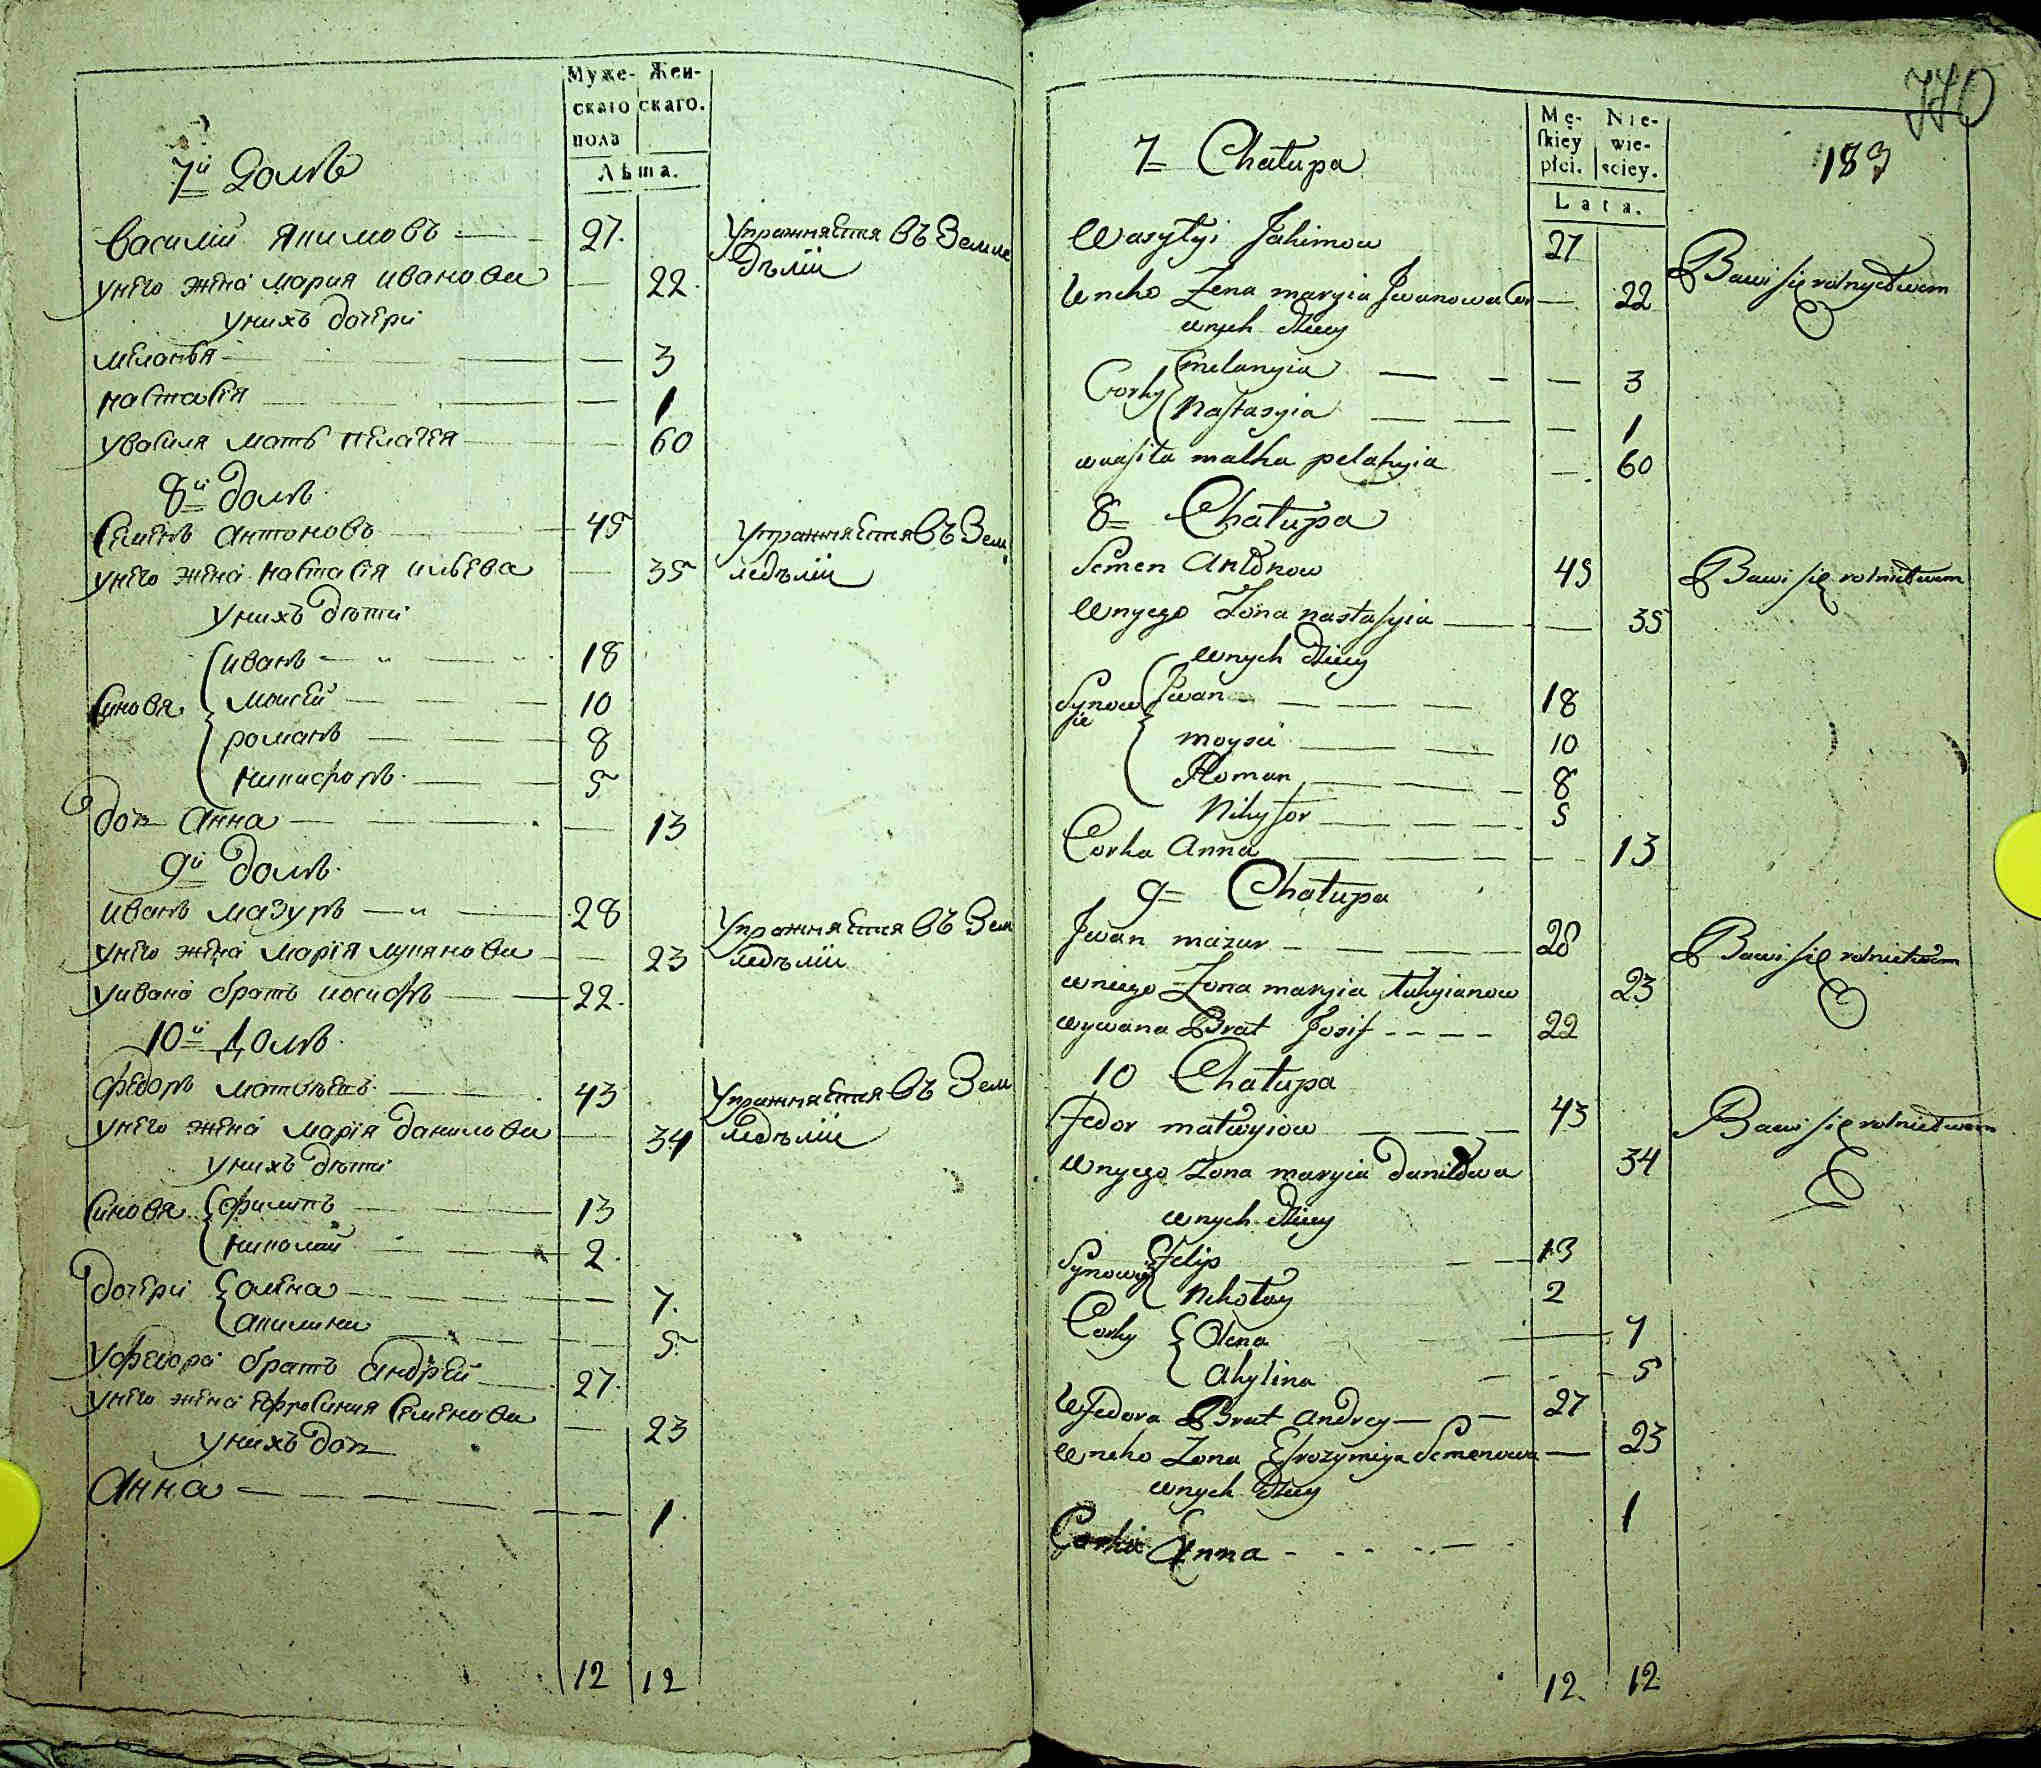 Муже- Жен-
скаго скаго.
пола
Лѣта.
7й Домъ
Василий Якимовъ 27. Упражняется въ Земле
дѣлии
унего жена Мария Иванова 22.
унихъ дочери
Меланья 3
Настасїя 1
уВасиля мать Пелагея 60
8й домъ.
Семенъ Антоновъ 45 Упражняется въ Зем
ледѣлии
унего жена Настасїя Ильева 35
унихъ дѣти
Сыновя Иванъ 18
Моисей 10
Романъ 8
Никифоръ 5
дочь Анна 13
9й домъ.
Иванъ Мазуръ 28 Упражняется въ Зем
ледѣлии
унего жена Марїя Лукянова 23
уИвана братъ Иосифъ 22.
10й Домъ.
Федоръ Матвѣевъ 43 Упражняется въ Зем
ледѣлии
унего жена Марїя Данилова 34
унихъ дѣти
Сыновя Филипъ 13
Николай 2.
дочери Алена 7.
Акилина 5.
уФедора братъ Андрей 27.
унего жена Ефросиния Семенова 23
унихъ дочь
Анна 1.
12 12
770
Mę- Nie-
skiey wie-
płci. sciey.
Lata.
189
7 Chałupa
Wasylyi Jakimow 27 Bawi się rolnyctwem
Wneho Zena maryia Jwanowa 22
wnych dzieci
Corky melanyia 3
Nastasyia 1
wwasila matka pelahyia 60
8 Chałupa
Semen Antonow 45 Bawi się rolnictwem
Wnyego Zona nastasyia 35
wnych dzieci
Synow
ie Jwan 18
moysei 10
Roman 8
Nikyfor 5
Corka Anna 13
9 Chałupa
Jwan mazur 28 Bawi się rolnictwem
wniego Zona maryia Łukyianow 23
wywana Brat Josif 22
10 Chałupa
Fedor matwyiow 43 Bawi się rolnictwem
Wnyego Zona maryia Daniłowa 34
wnych dzieci
Synowy Felip 13
Nikołay 2
Corky Olena 7
Akylina 5
WFedora Brat Andrey 27
Wneho Zona Efrozyniya Semenowa 23
wnych dzieci
Corka Anna 1
12. 12